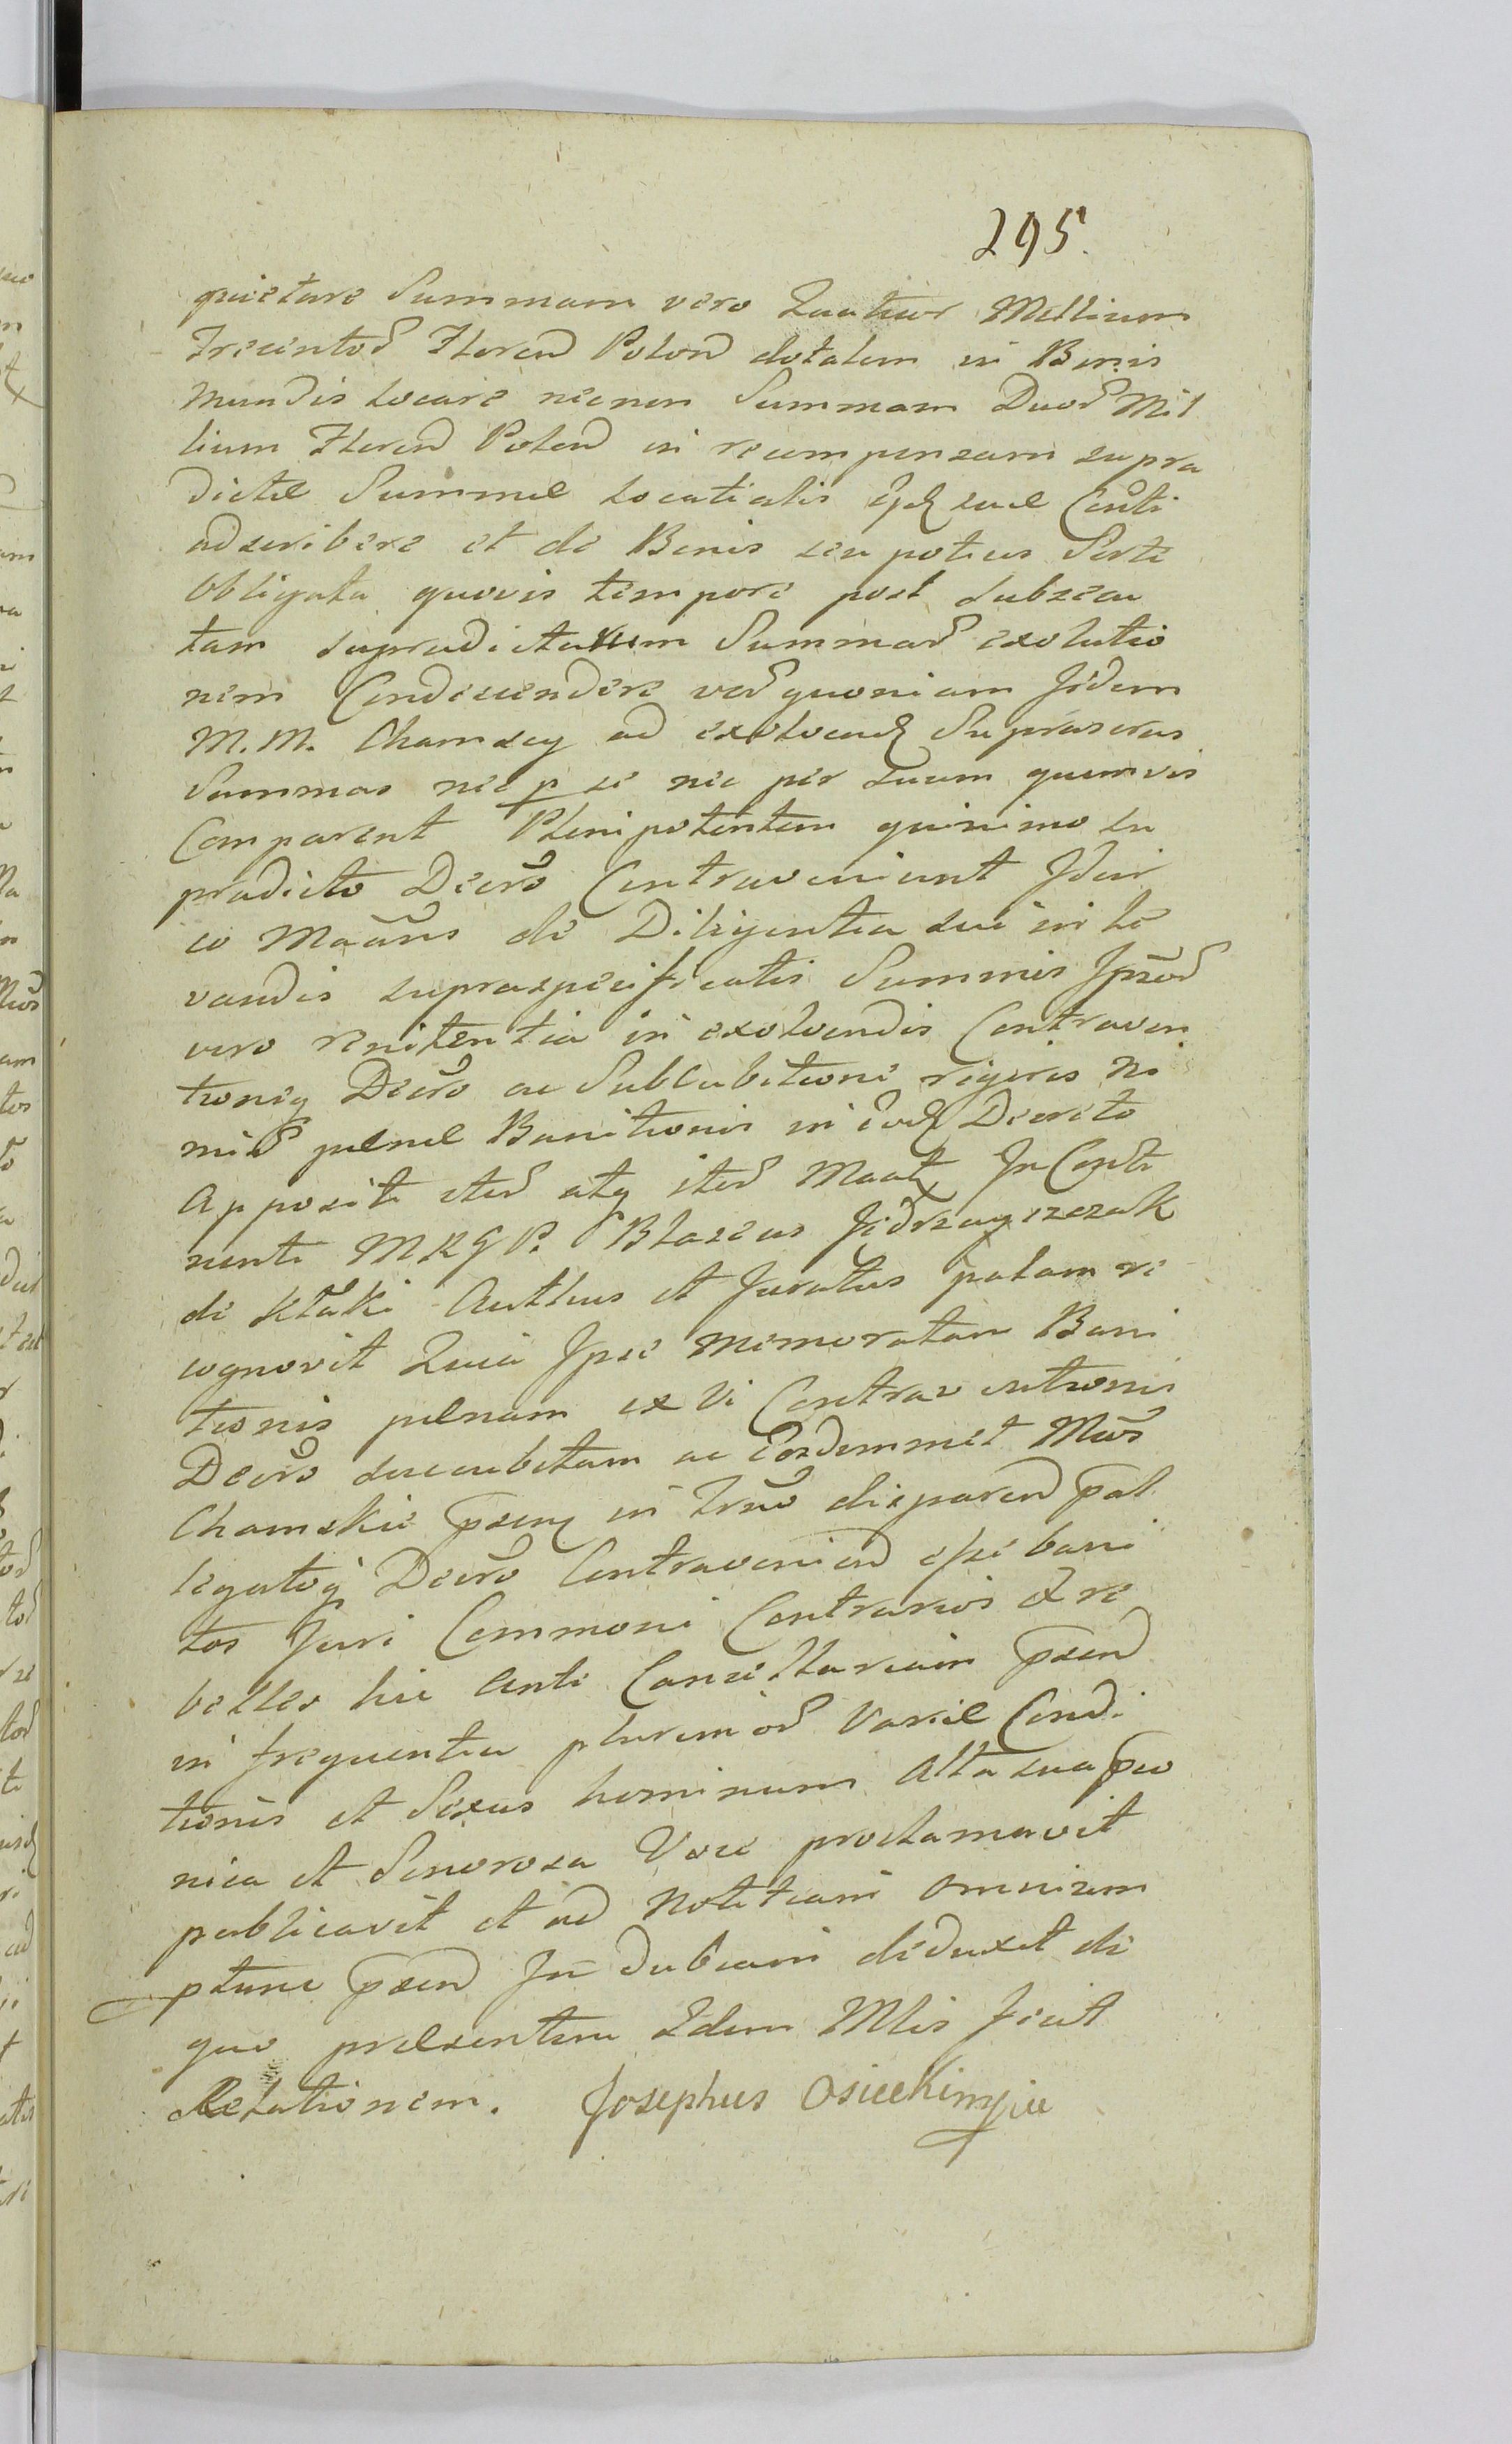 295.
quietare Summam vero Quatuor Millium
Trecentor Floren Polon dotalem in Bonis
mundis locare necnon Summam Duor Mil
lium Floren Polon in recumpensam supra
dictæ Summæ locatialis Conti
adscribere et de Bonis seu potius Sorte
obligata quovis tempore post subsecu
tam supradictarum Summar exolutio
nem Condescendere ver quoniam Iidem
M. M. Chamscy ad exolvend Suprascrus
Summas nec p se nec per suum quemvis
Comparent Plenipotentem quinimo su
pradicto Decro Contraveniunt Idcir
co Maans de Diligentia sui in le
vandis supraspecificatis Summis Ipsor
vero renitentia in exolvendis Contraven
tioneq Decro ac Subcubitione rigoris no
mis pænæ Banitionis in eod Decreto
Apposit iter atq iter Maat In Conti
nenti M R G P. Blaseus Jędrzayczczak
de Autthus et Juratus palam re
cognovit Quia Ipse memoratam Bani
tionis pænam ex Vi Contraventionis
Decro succubitam ac Eosdemmet Mcos
Chamskie psens in Trno disparen pal
legatoq Decro Contravenien esse bani
tos Juri Communi Contrarios et re
belles hic Ante Cancellariam psen
in frequentia plurimor Variæ Condi
tionis et Sexus hominum Alta sua
nica et Sonorosa Voce proclamavit
publicavit et ad notitiam omnium
ptunc psen In dubiam deduxit de
quo præsentem Idem Mlis fecit
Relationem. Josephus Osiecki mpia